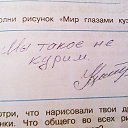 олни рисунок «Мир глазами куз
Мы такое не
курим.
отри, что нарисовали твои др
нки. Что общего во всех ри